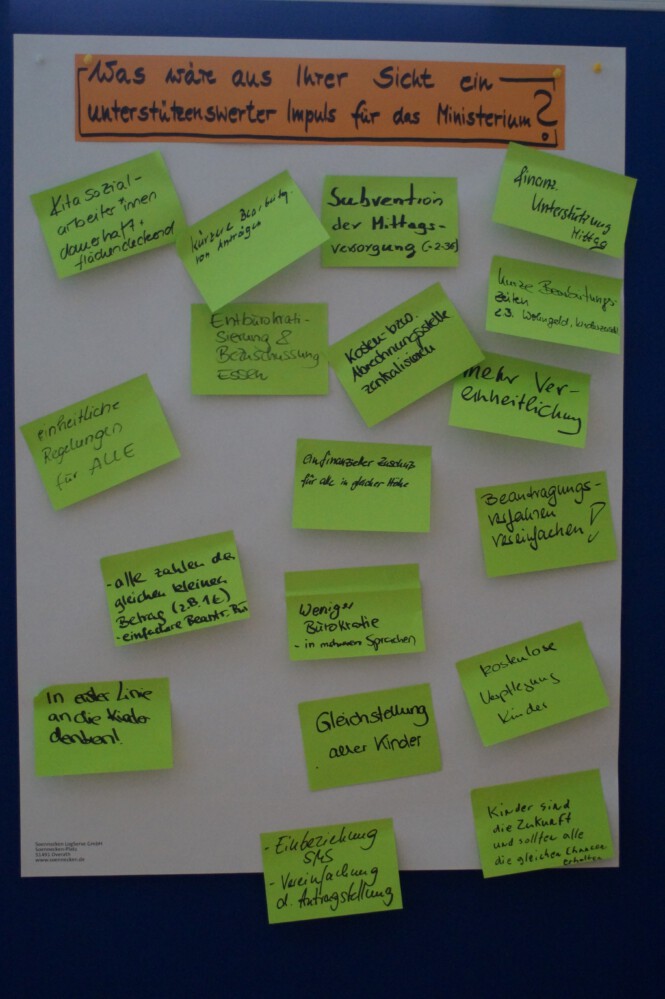 Was wäre aus Ihrer Sicht ein
unterstützenswerter Impuls für das Ministerium?
Kita Sozial-
arbeiter*innen
dauerhaft +
flächendeckend
kürzere Bearbeitg.
von Anträgen
Subvention
der Mittags-
versorgung (-2-3€)
finanz.
Unterstützung
Mittag
kurze Bearbeitungs-
zeiten
z.B. Wohngeld,
Entbürokrati-
sierung &
Bezuschussung
Essen
Kosten- bzw.
Abrechnungsstelle
zentralisieren
mehr Ver-
einheitlichung
einheitliche
Regelungen
für ALLE
Ein finanzieller Zuschuss
für alle in gleicher Höhe
Beantragungs-
verfahren
vereinfachen!
- alle zahlen den
gleichen kleinen
Betrag (z.B. 1€)
- einfachere Beantr.
Weniger
Bürokratie
- in mehreren Sprachen
kostenlose
Verpflegung
Kinder
In erster Linie
an die Kinder
denken!
Gleichstellung
aller Kinder
Kinder sind
die Zukunft
und sollten alle
die gleichen Chancen
erhalten
- Einbeziehung
SMS
- Vereinfachung
d. Antragstellung
Soennecken Logiserve GmbH
Soennecken-Platz
51491 Overath
www.soennecken.de